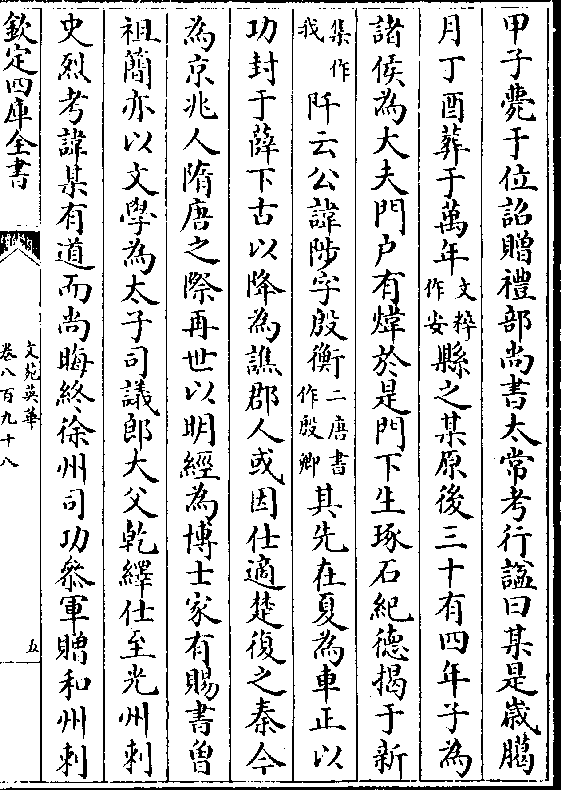 甲子薨于位詔贈禮部尚書太常考行諡曰某是歲臈
月丁酉葬于萬年文粹作安縣之某原後三十有四年子為
諸侯為大夫門户有煒於是門下生琢石紀德揭于新
集作我阡云公諱陟字殷衡二唐書作殷卿其先在夏為車正以
功封于薛下古以降為譙郡人或因仕適楚復之秦今
為京兆人隋唐之際再世以明經為博士家有賜書曽
祖簡亦以文學為太子司議郎大父乾繹仕至光州刺
史烈考諱某有道而尚晦終徐州司功叅軍贈和州刺
欽定四庫全書
文苑英華
卷八百九十八
五